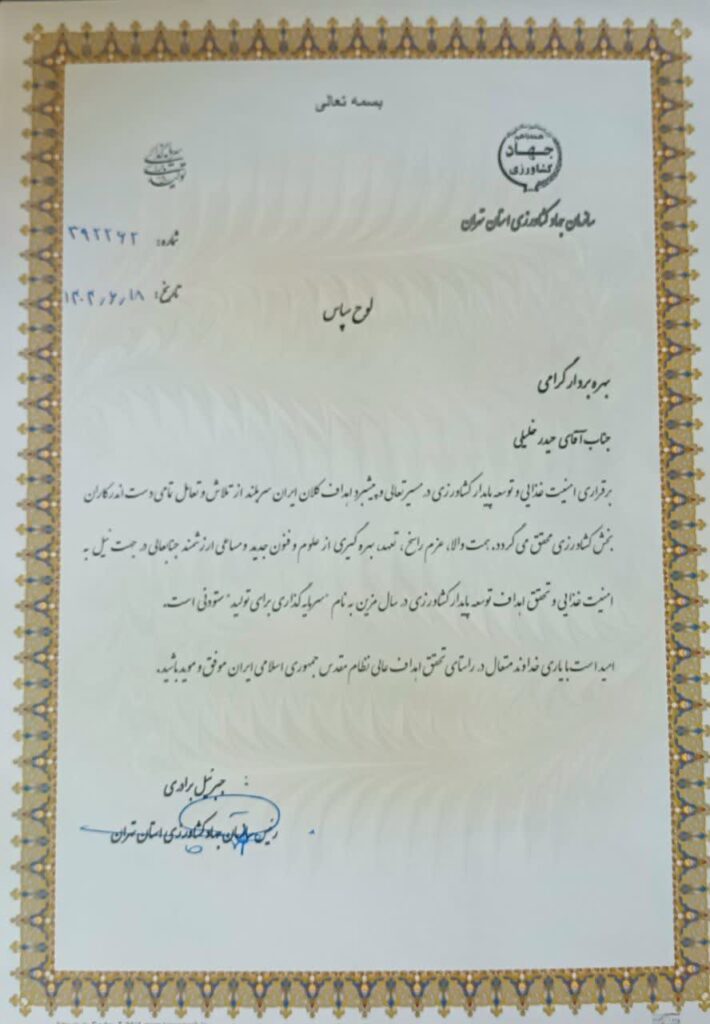 بسمه تعالی
جهاد
کشاورزی
سازمان جهاد کشاورزی استان تهران
سرمایه‌گذاری
برای تولید
شماره: ۳۹۲۲۶۲
تاریخ: ۱۴۰۴٫۶٫۱۸
لوح سپاس
بهره بردار گرامی
جناب آقای حیدر خلیلی
برقراری امنیت غذایی و توسعه پایدار کشاورزی در مسیر تعالی و پیشبرد اهداف کلان ایران سربلند از تلاش و تعامل تمامی دست اندرکاران
بخش کشاورزی محقق می گردد. همت والا، عزم راسخ، تعهد، بهره گیری از علوم و فنون جدید و مساعی ارزشمند جنابعالی در جهت نیل به
امنیت غذایی و تحقق اهداف توسعه پایدار کشاورزی در سال مزین به نام "سرمایه گذاری برای تولید" ستودنی است.
امید است با یاری خداوند متعال در راستای تحقق اهداف عالی نظام مقدس جمهوری اسلامی ایران موفق و موید باشید.
جبرئیل برادری
رئیس سازمان جهاد کشاورزی استان تهران